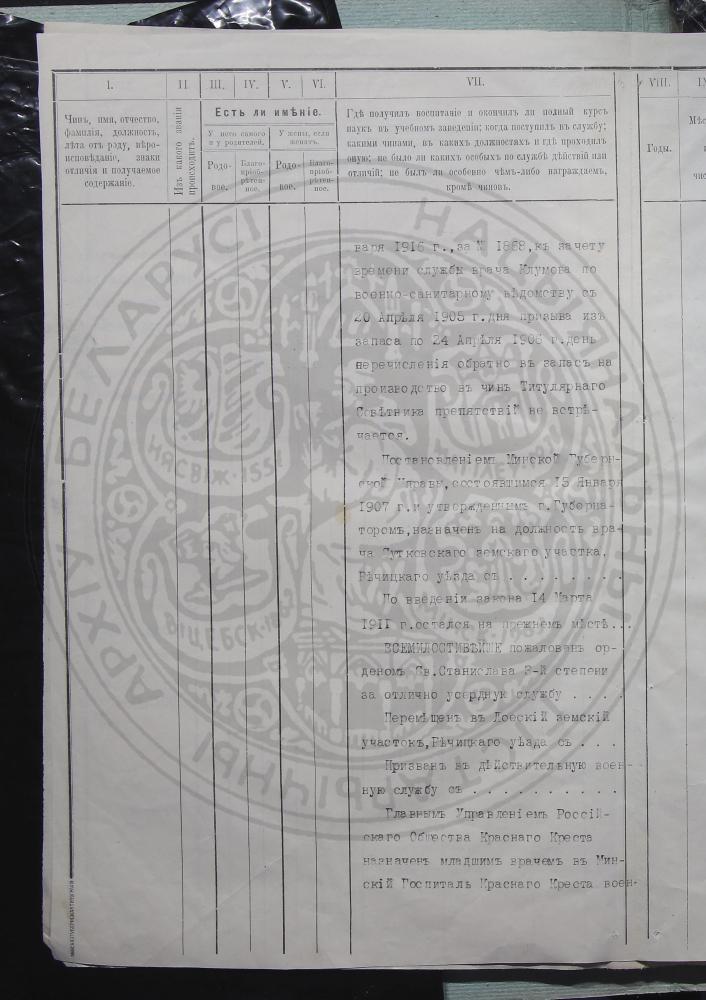 I.
II.
III.
IV.
V.
VI.
VII.
VIII.
IX
Чинъ, имя, отчество,
фамилія, должность,
лѣта отъ роду, вѣро-
исповѣданіе, знаки
отличія и получаемое
содержаніе.
Изъ какого званія
происходитъ.
Есть ли имѣніе.
У него самого
и у родителей.
У жены, если
женатъ.
Родо-
вое.
Благо-
пріоб-
рѣтен-
ное.
Родо-
вое.
Благо-
пріоб-
рѣтен-
ное.
Гдѣ получилъ воспитаніе и окончилъ ли полный курсъ
наукъ въ учебномъ заведеніи; когда поступилъ въ службу;
какими чинами, въ какихъ должностяхъ и гдѣ проходилъ
оную; не было ли какихъ особыхъ по службѣ дѣйствій или
отличій; не былъ ли особенно чѣмъ-либо награждаемъ,
кромѣ чиновъ.
Годы.
варя 1916 г., за № 1868, къ зачету
времени службы врача Клумова по
военно-санитарному вѣдомству съ
20 Апрѣля 1905 г. дня призыва изъ
запаса по 24 Апрѣля 1906 г. день
перечисленія обратно въ запасъ на
производство въ чинъ Титулярнаго
Совѣтника препятствій не встрѣ-
чается.
Постановленіемъ Минской Губерн-
ской Управы, состоявшимся 15 Января
1907 г. и утвержденнымъ г. Губерна-
торомъ, назначенъ на должность вра-
ча Сутковскаго земскаго участка,
Рѣчицкаго уѣзда съ . . . . . . . .
По введеніи закона 14 Марта
1911 г. остался на прежнемъ мѣстѣ...
ВСЕМИЛОСТИВѢЙШЕ пожалованъ ор-
деномъ Св. Станислава 3-й степени
за отлично усердную службу . . . .
Перемѣщенъ въ Лоескій земскій
участокъ, Рѣчицкаго уѣзда съ . . .
Призванъ въ дѣйствительную воен-
ную службу съ . . . . . . . . . . .
Главнымъ Управленіемъ Россій-
скаго Общества Краснаго Креста
назначенъ младшимъ врачемъ въ Мин-
скій Госпиталь Краснаго Креста воен-